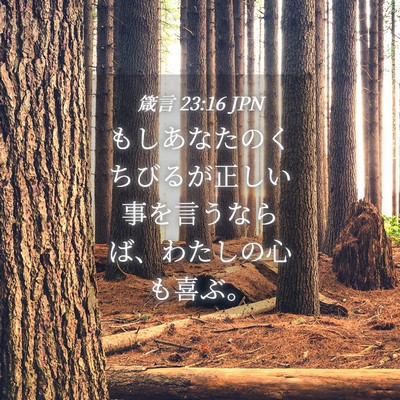 箴言 23:16 JPN
もしあなたのく
ちびるが正しい
事を言うなら
ば、わたしの心
も喜ぶ。